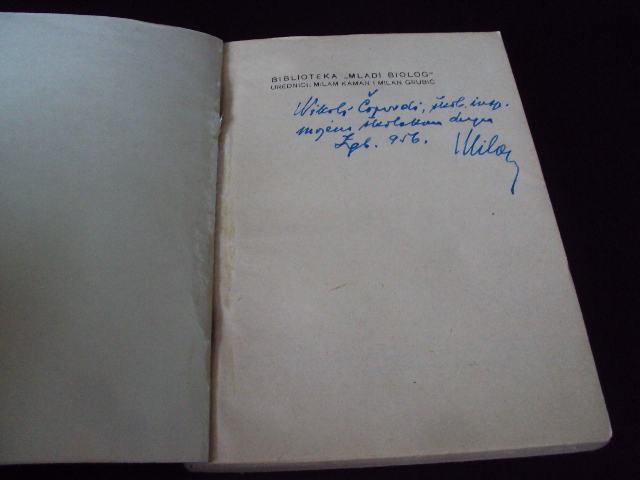 BIBLIOTEKA „MLADI BIOLOG"
UREDNICI: MILAM KAMAN I MILAN GRUBIĆ
Nikoli Čopordi, škol. insp.
mojem školskom drugu
Zgb. 956. Milan